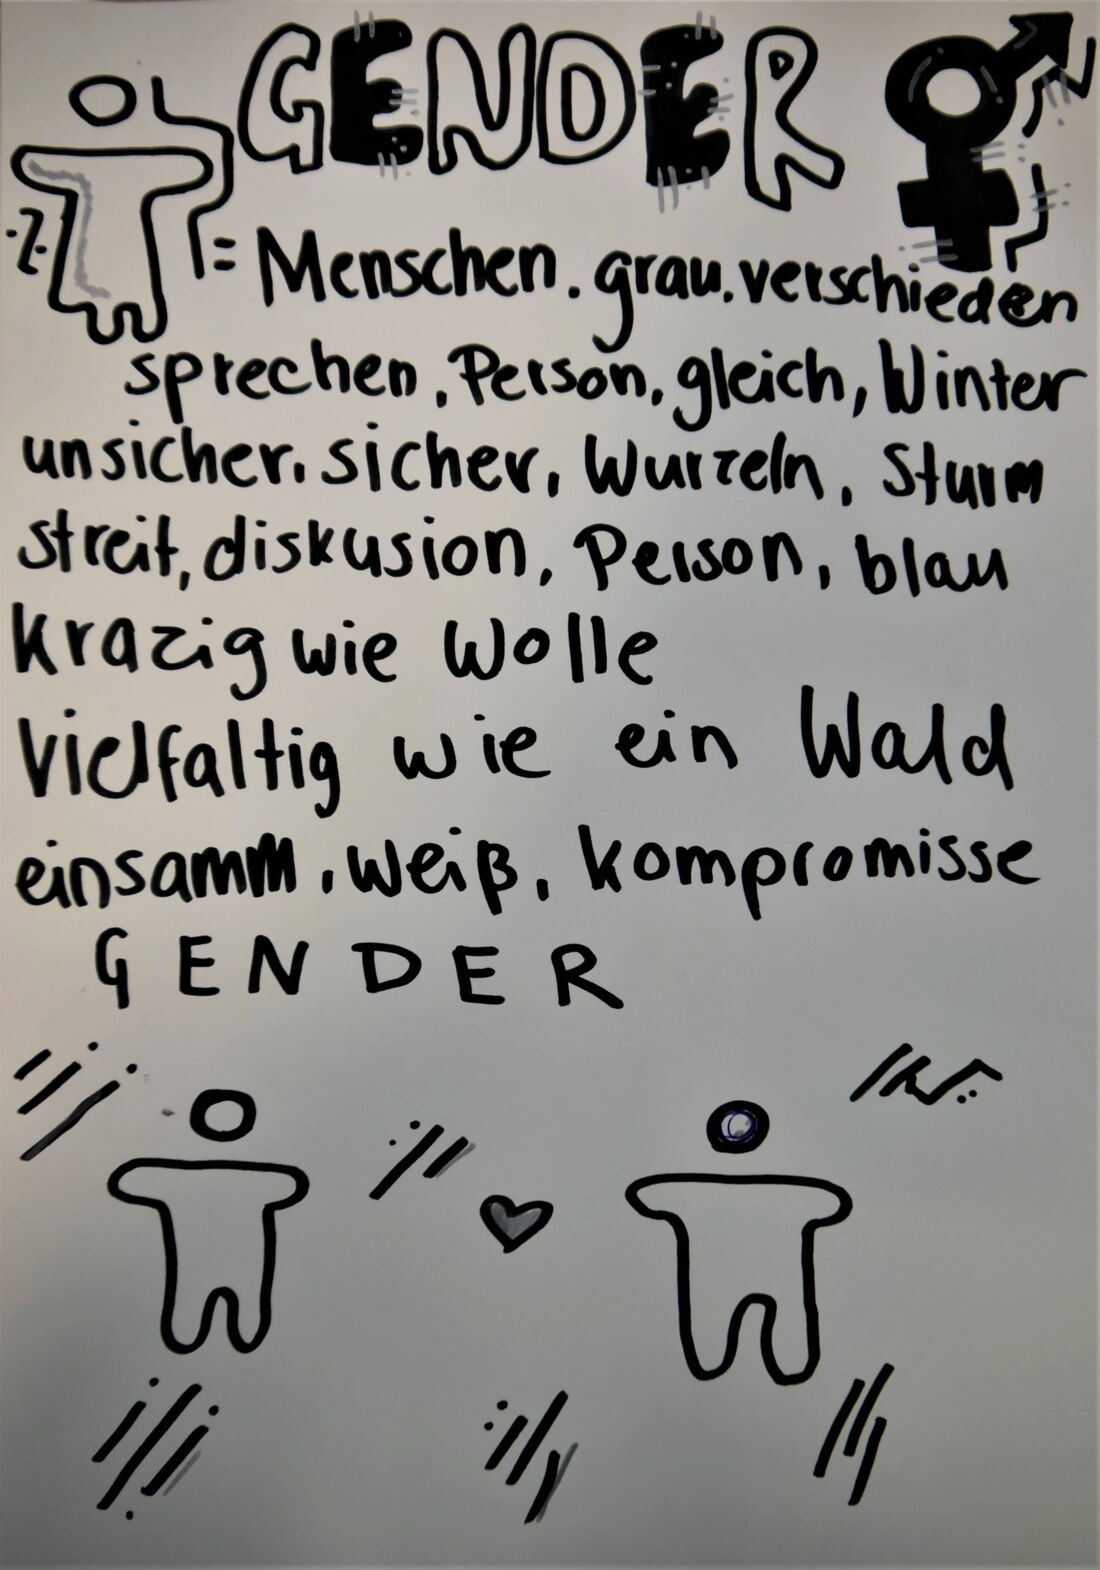 GENDER
= Menschen. grau. verschieden
sprechen, Person, gleich, Winter
unsicher. sicher, Wurzeln, Sturm
streit, diskusion, Person, blau
krazig wie Wolle
Vielfaltig wie ein Wald
einsamm, weiß, kompromisse
GENDER